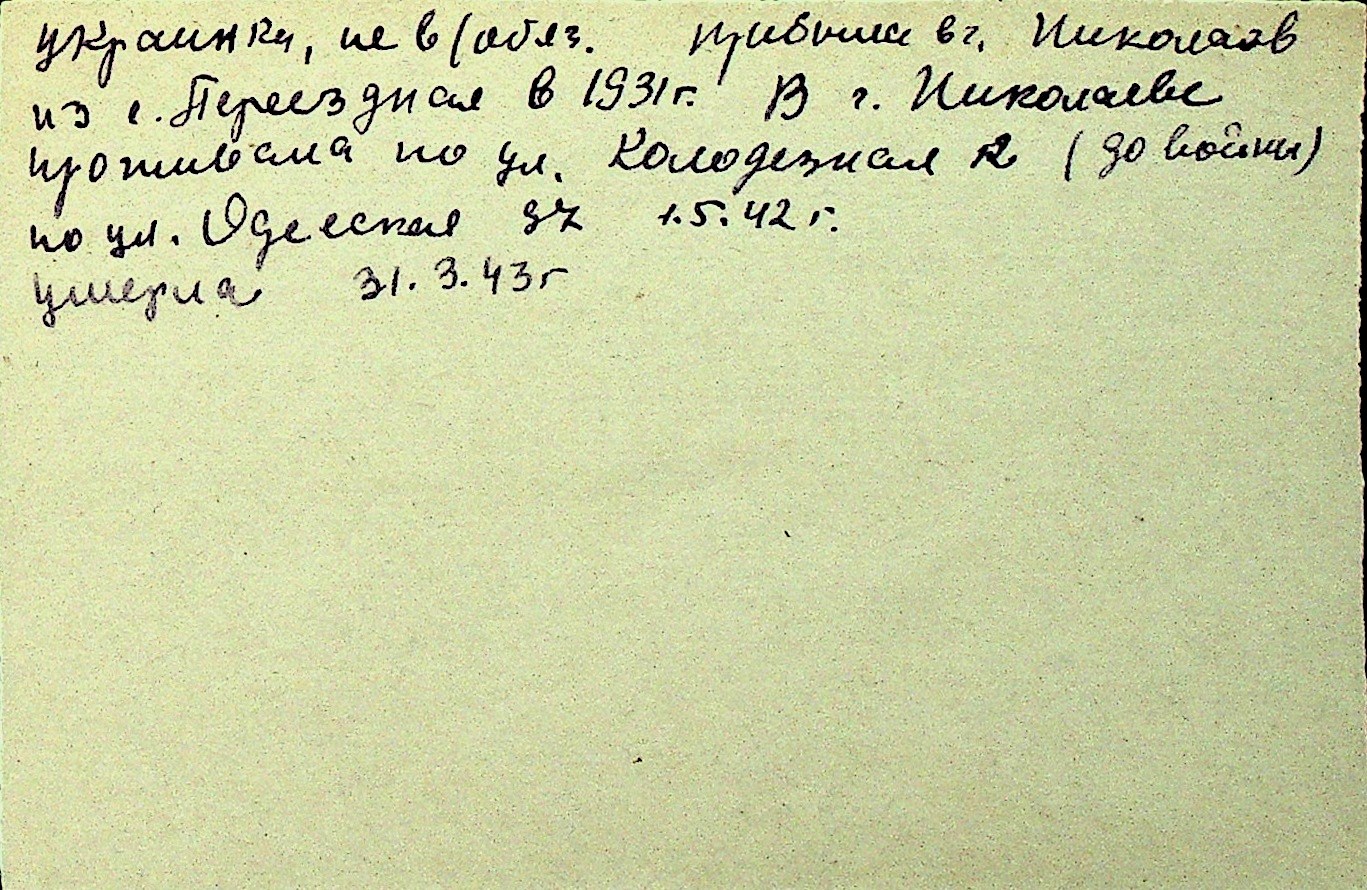 украинка, не в/обяз. прибыла в г. Николаев
из с. Переездная в 1931 г. В г. Николаеве
проживала по ул. Колодезная 2 (до войны)
по ул. Одесская 1.5.42 г.
умерла 31.3.43 г